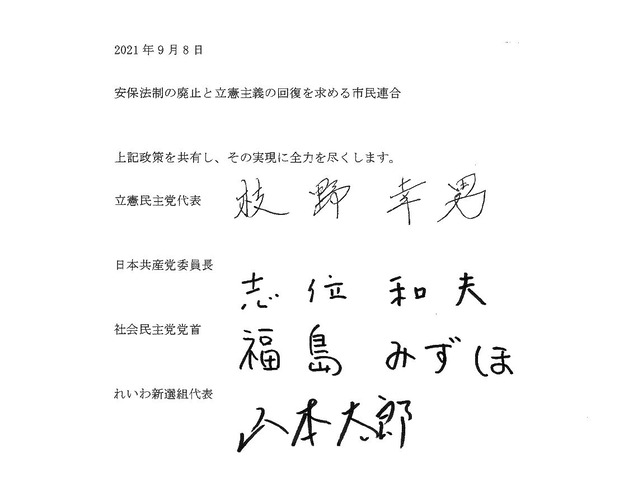 2021年9月8日
安保法制の廃止と立憲主義の回復を求める市民連合
上記政策を共有し、その実現に全力を尽くします。
立憲民主党代表 枝野幸男
日本共産党委員長 志位和夫
社会民主党党首 福島みずほ
れいわ新選組代表 山本太郎